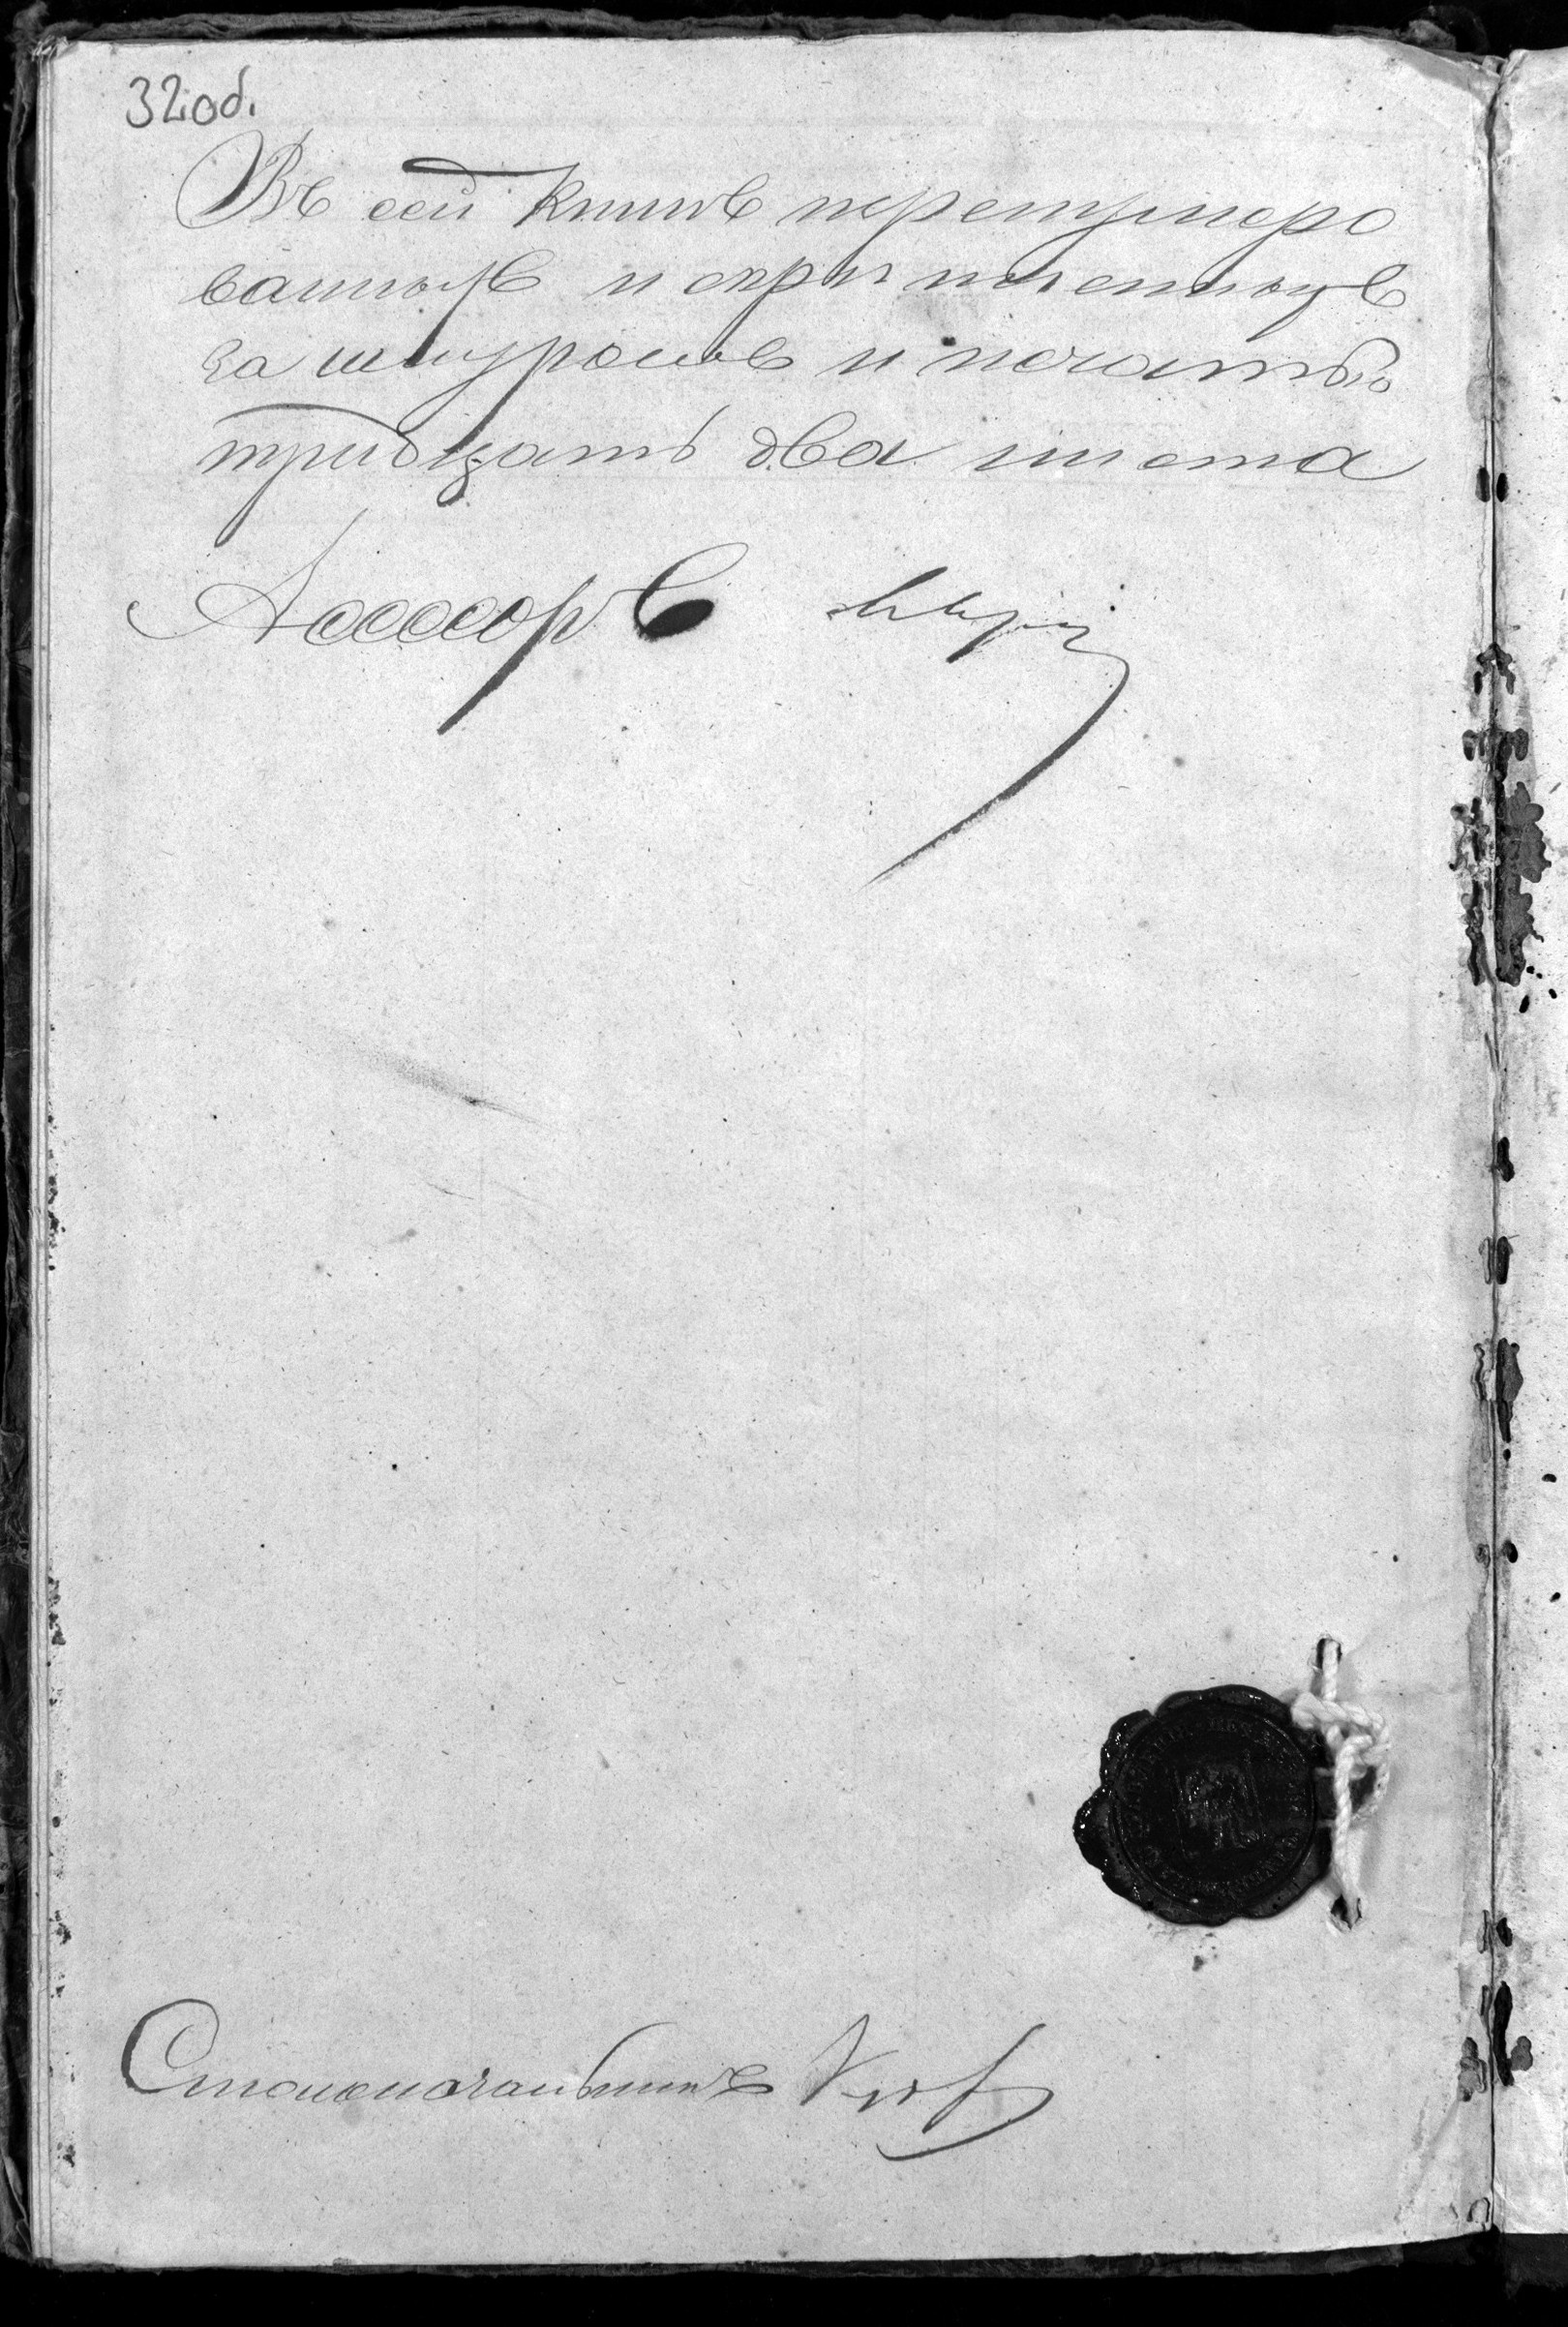 32об.
Въ сей книгѣ перенумеро
ванныхъ и скрѣпленныхъ
за шнуромъ и печатью
тридцать два листа
Ассесоръ
Столоначальникъ